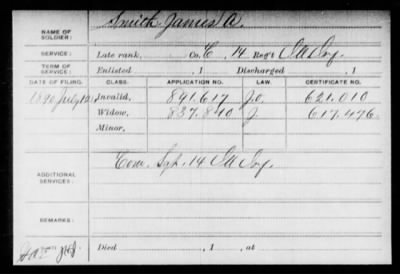 NAME OF SOLDIER: Smith, James A.
SERVICE: Late rank, Co. E, 14 Reg't Inf.
TERM OF SERVICE: Enlisted , 1 Discharged , 1
DATE OF FILING. CLASS. APPLICATION NO. LAW. CERTIFICATE NO.
1890 July Invalid, 891.617 J.O. 621.010
Widow, 837.840 J. 617.476
Minor,
ADDITIONAL SERVICES: 14 Inf.
REMARKS:
Died , 1 , at